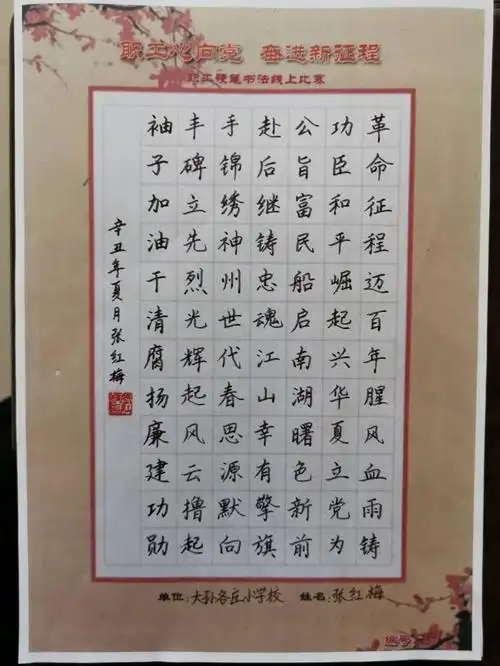 职工心向党 奋进新征程
职工硬笔书法线上比赛
革命征程迈百年腥风血雨铸
功臣和平崛起兴华夏立党为
公旨富民船启南湖曙色新前
赴后继铸忠魂江山幸有擎旗
手锦绣神州世代春思源默向
丰碑立先烈光辉起风云撸起
袖子加油干清腐扬廉建功勋
辛丑年夏月张红梅
单位:大孙各庄小学校 姓名:张红梅